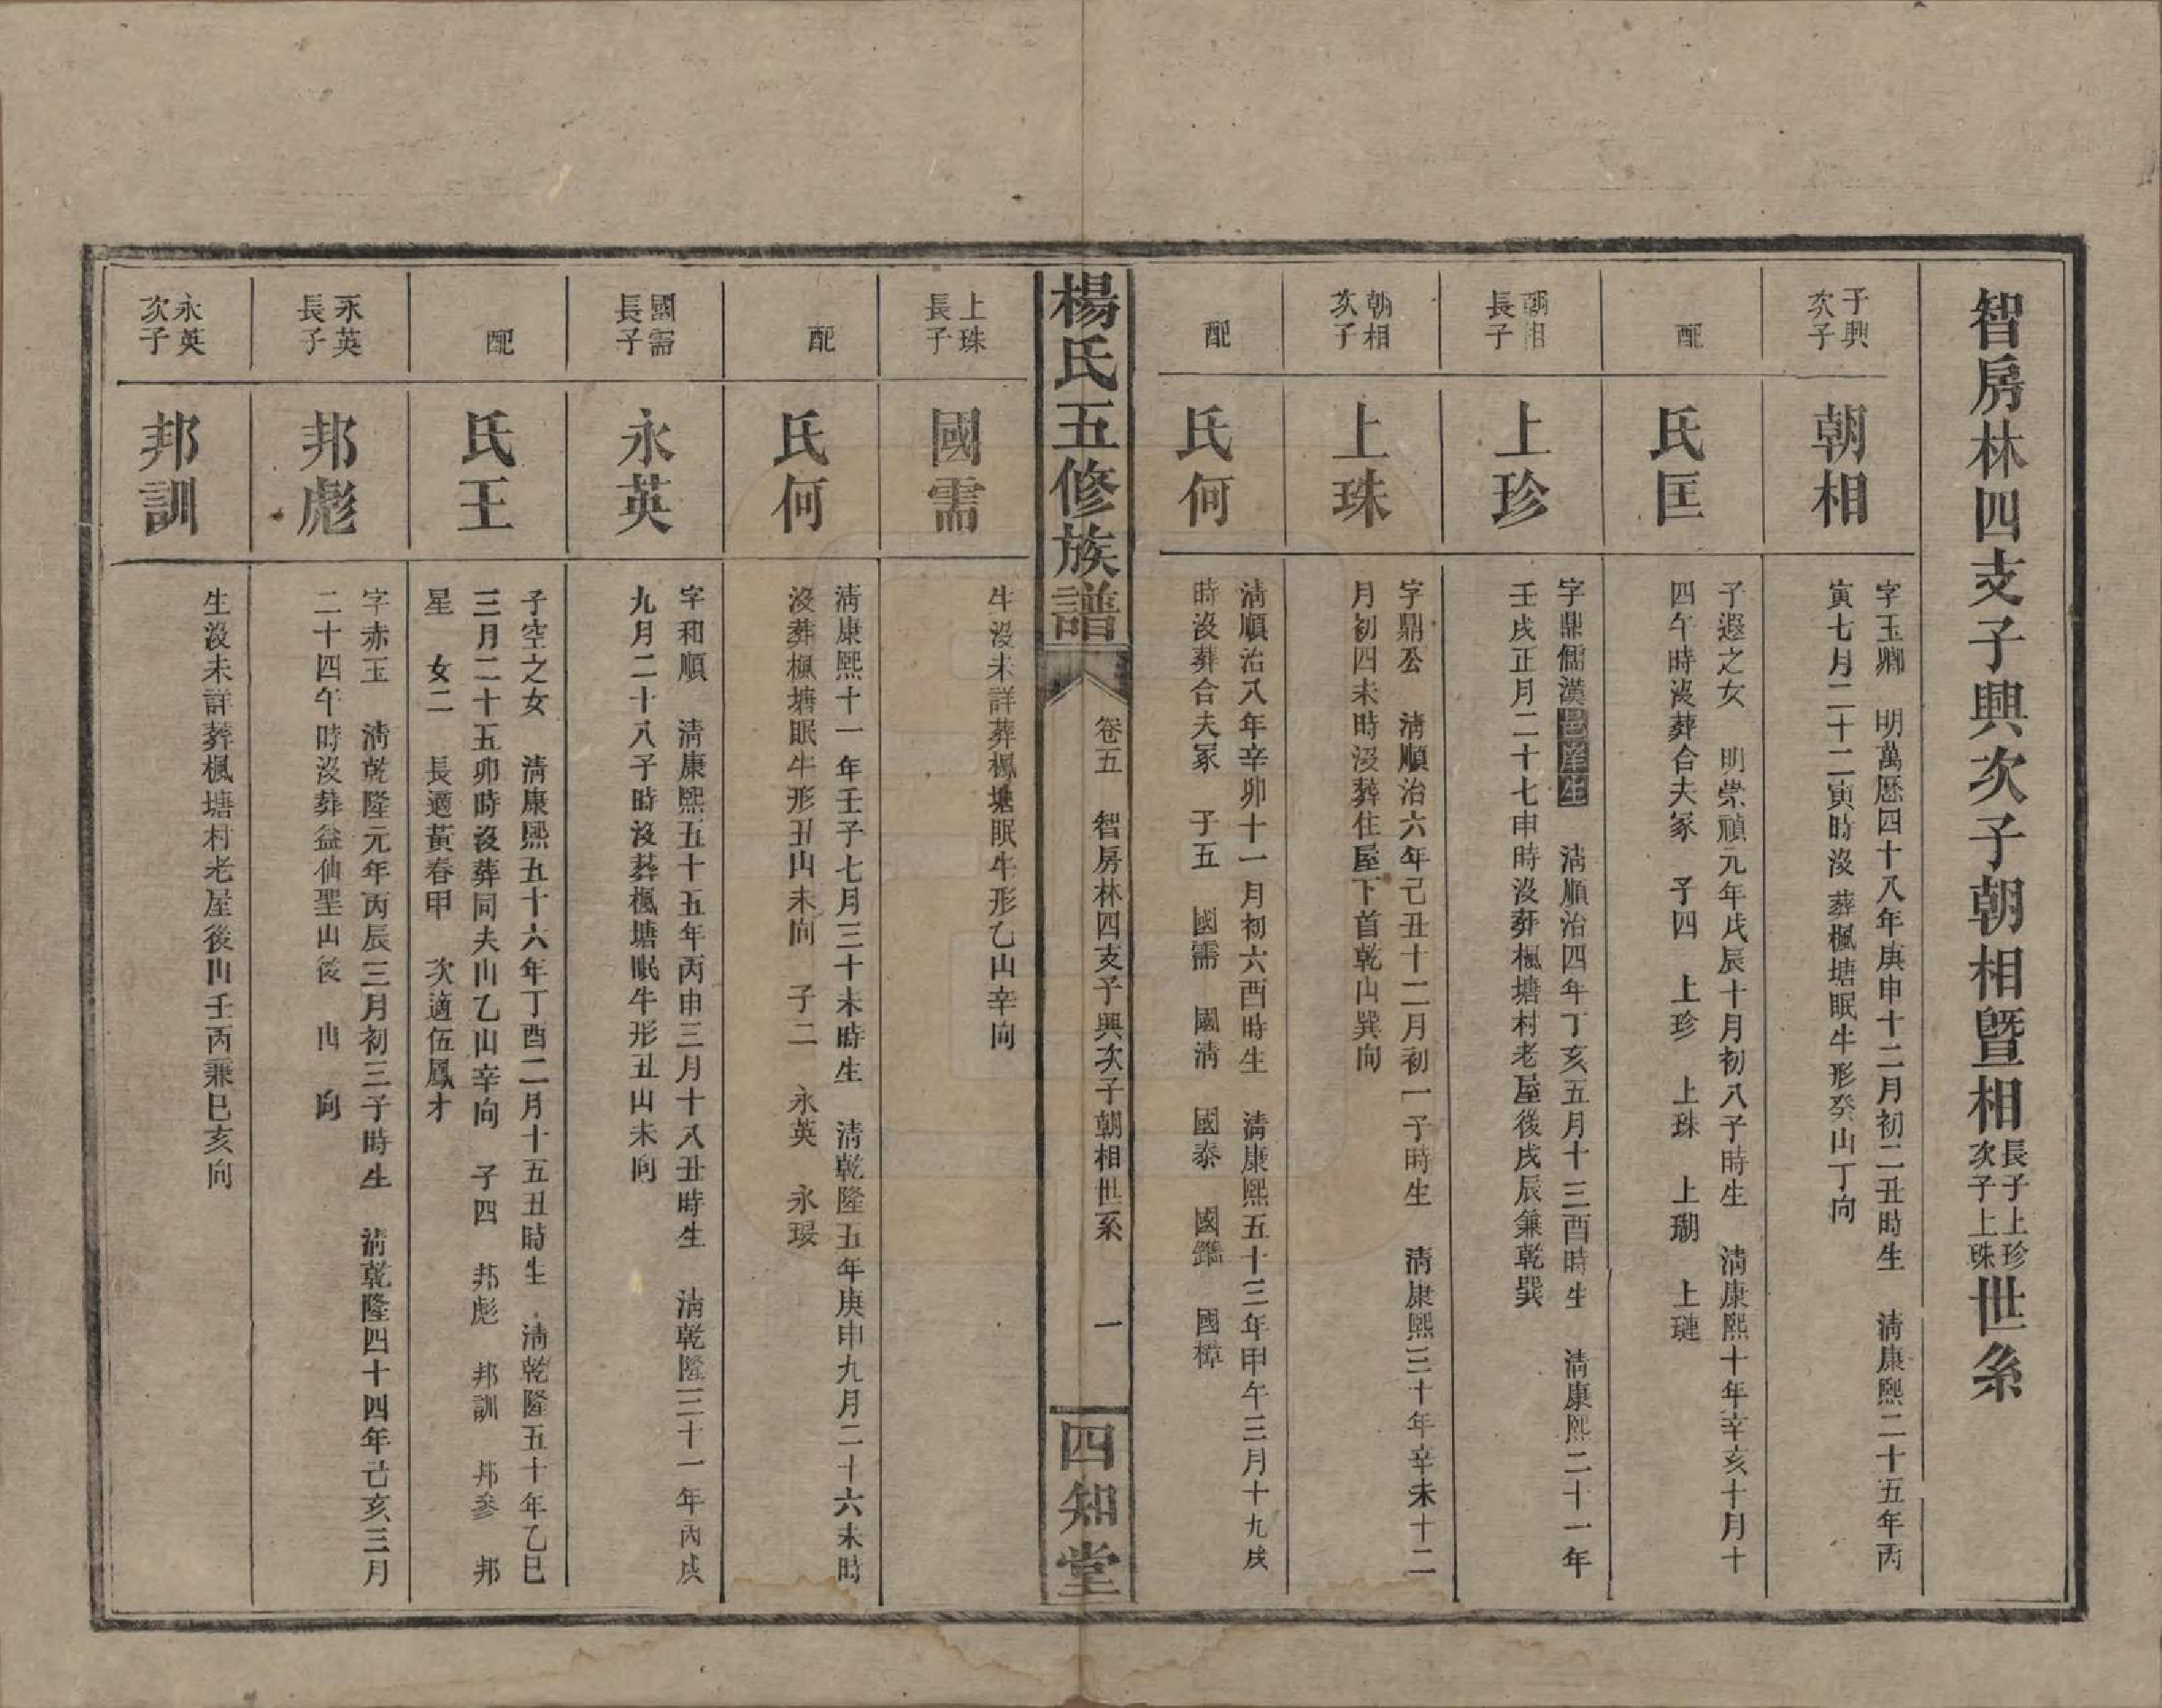 智房林四支子興次子朝相暨相長子上珍次子上珠世系
子興次子
朝相
字玉鼎　明萬歷四十八年庚申十二月初二丑時生　清康熙二十五年丙
寅七月二十二寅時沒　葬楓塘眠牛形癸山丁向
配
氏匡
子遐之女　明崇禎元年戊辰十月初八子時生　清康熙十年辛亥十月十
四午時沒葬合夫冢　子四　上珍　上珠　上瑚　上璉
朝相長子
上珍
字鼎儒漢邑庠生　清順治四年丁亥五月十三酉時生　清康熙二十一年
壬戌正月二十七申時沒葬楓塘村老屋後戌辰兼乾巽
朝相次子
上珠
字鼎公　清順治六年己丑十二月初一子時生　清康熙三十年辛未十二
月初四未時沒葬住屋下首乾山巽向
配
氏何
清順治八年辛卯十一月初六酉時生　清康熙五十三年甲午三月十九戌
時沒葬合夫冢　子五　國需　國清　國泰　國鑑　國樟
楊氏五修族譜
卷五　智房林四支子興次子朝相世系　一
四知堂
上珠長子
國需
生沒未詳葬楓塘眠牛形乙山辛向
配
氏何
清康熙十一年壬子七月三十未時生　清乾隆五年庚申九月二十六未時
沒葬楓塘眠牛形丑山未向　子二　永英　永瑗
國需長子
永英
字和順　清康熙五十五年丙申三月十八丑時生　清乾隆三十一年丙戌
九月二十八子時沒葬楓塘眠牛形丑山未向
配
氏王
子空之女　清康熙五十六年丁酉二月十五丑時生　清乾隆五十年乙巳
三月二十五卯時沒葬同夫山乙山辛向　子四　邦彪　邦訓　邦參　邦
星　女二　長適黃春甲　次適伍鳳才
永英長子
邦彪
字赤玉　清乾隆元年丙辰三月初三子時生　清乾隆四十四年己亥三月
二十四午時沒葬益仙聖山後　山　向
永英次子
邦訓
生沒未詳葬楓塘村老屋後山壬丙兼巳亥向